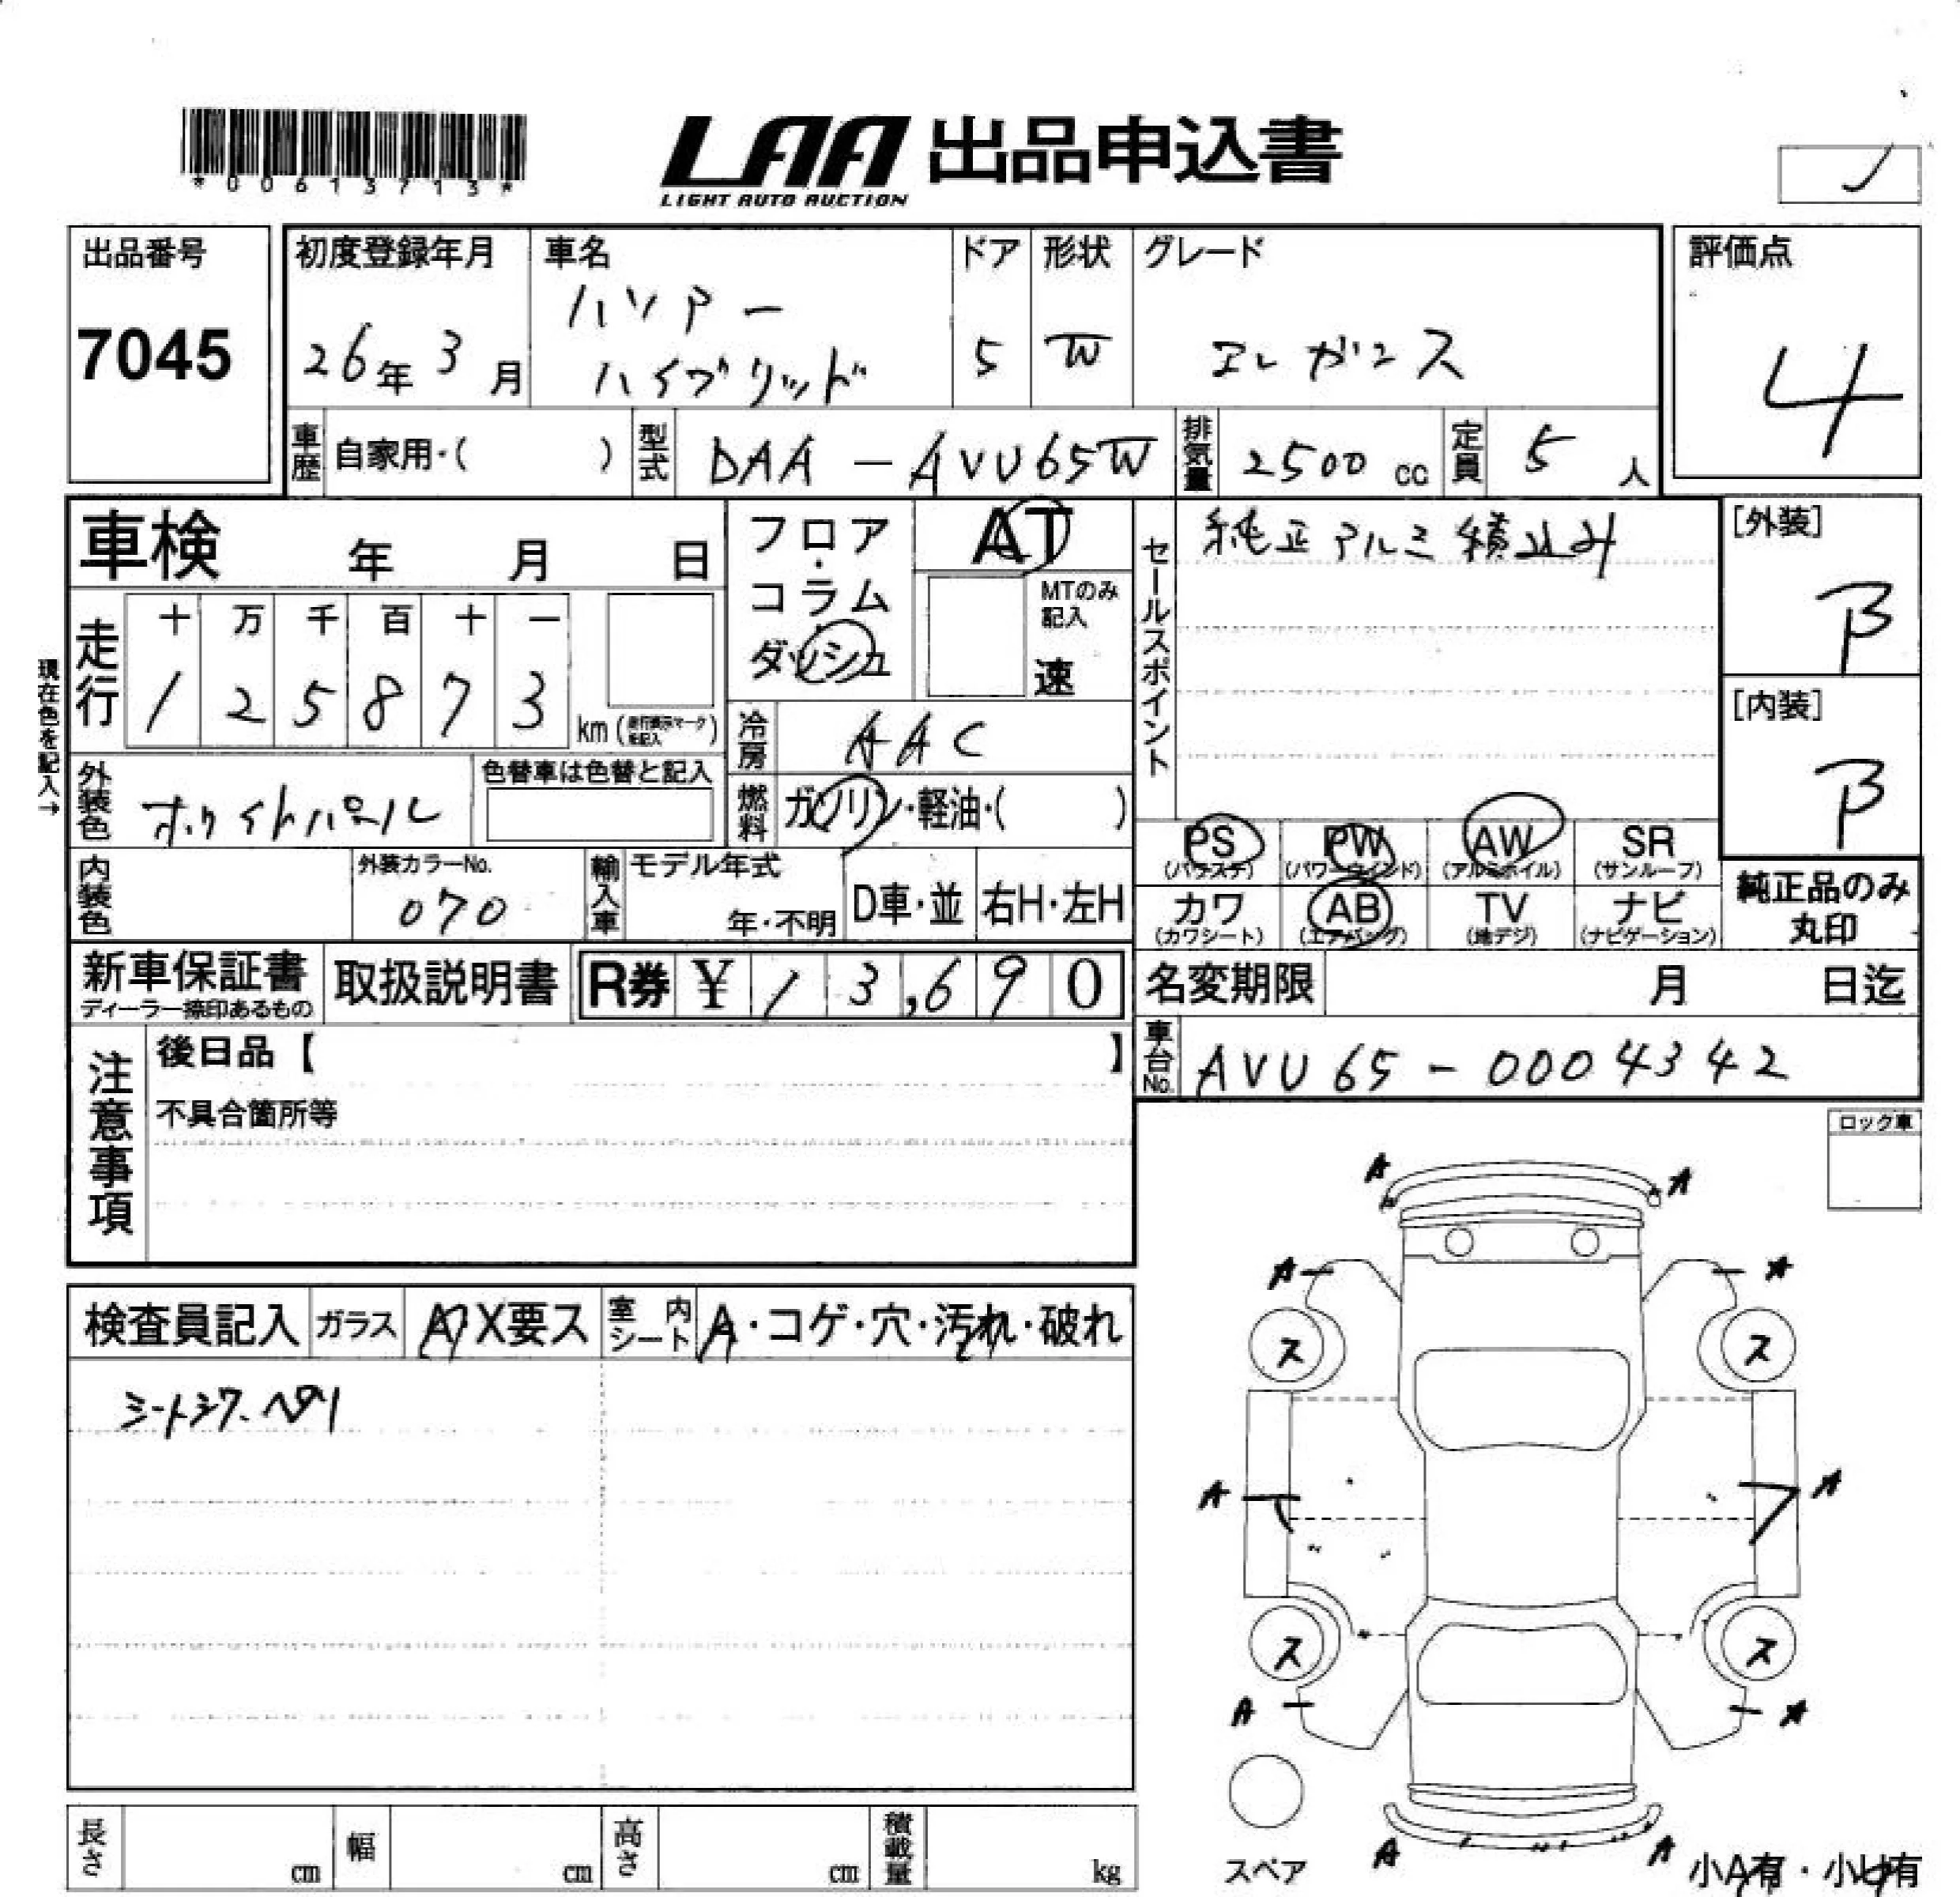 *00613713*
LAA 出品申込書
LIGHT AUTO AUCTION
出品番号
7045
初度登録年月
26年3月
車名
ハリアー
ハイブリッド
ドア
5
形状
W
グレード
エレガンス
評価点
4
車歴 自家用・( )
型式 DAA-AVU65W
排気量 2500 cc
定員 5 人
車検 年 月 日
フロア・コラム
ダッシュ
AT
MTのみ記入
速
セールスポイント
純正アルミ積込み
[外装]
B
[内装]
B
現在色を記入→
走行
十 万 千 百 十 一
1 2 5 8 7 3
km
冷房 AAC
外装色 ホワイトパール
色替車は色替と記入
燃料 ガソリン・軽油・( )
PS (パワステ)
PW (パワーウィンド)
AW (アルミホイル)
SR (サンルーフ)
カワ (カワシート)
AB (エアバッグ)
TV (地デジ)
ナビ (ナビゲーション)
純正品のみ
丸印
内装色
外装カラーNo.
070
輸入車
モデル年式
年・不明
D車・並
右H・左H
新車保証書
ディーラー捺印あるもの
取扱説明書
R券 ¥ 13,690
名変期限 月 日迄
車台No. AVU65-0004342
注意事項
後日品【 】
不具合箇所等
ロック車
検査員記入
ガラス A X要ス
室内シート A・コゲ・穴・汚れ・破れ
シートシワ、ヘタリ
A A
A A
ス ス
A A
ス ス
A A
A A
スペア
小A有・小U有
長さ cm
幅 cm
高さ cm
積載量 kg